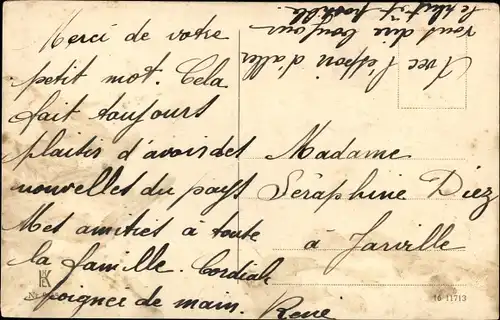 Merci de votre
petit mot. Cela
fait toujours
plaisir d'avoir des
nouvelles du pays
Mes amitiés à toute
la famille. Cordiale
poignée de main. René
Avec l'espoir d'aller
vous dire bonjour
le plutôt possible.
Madame
Séraphine Diez
à Jarville
16 11713